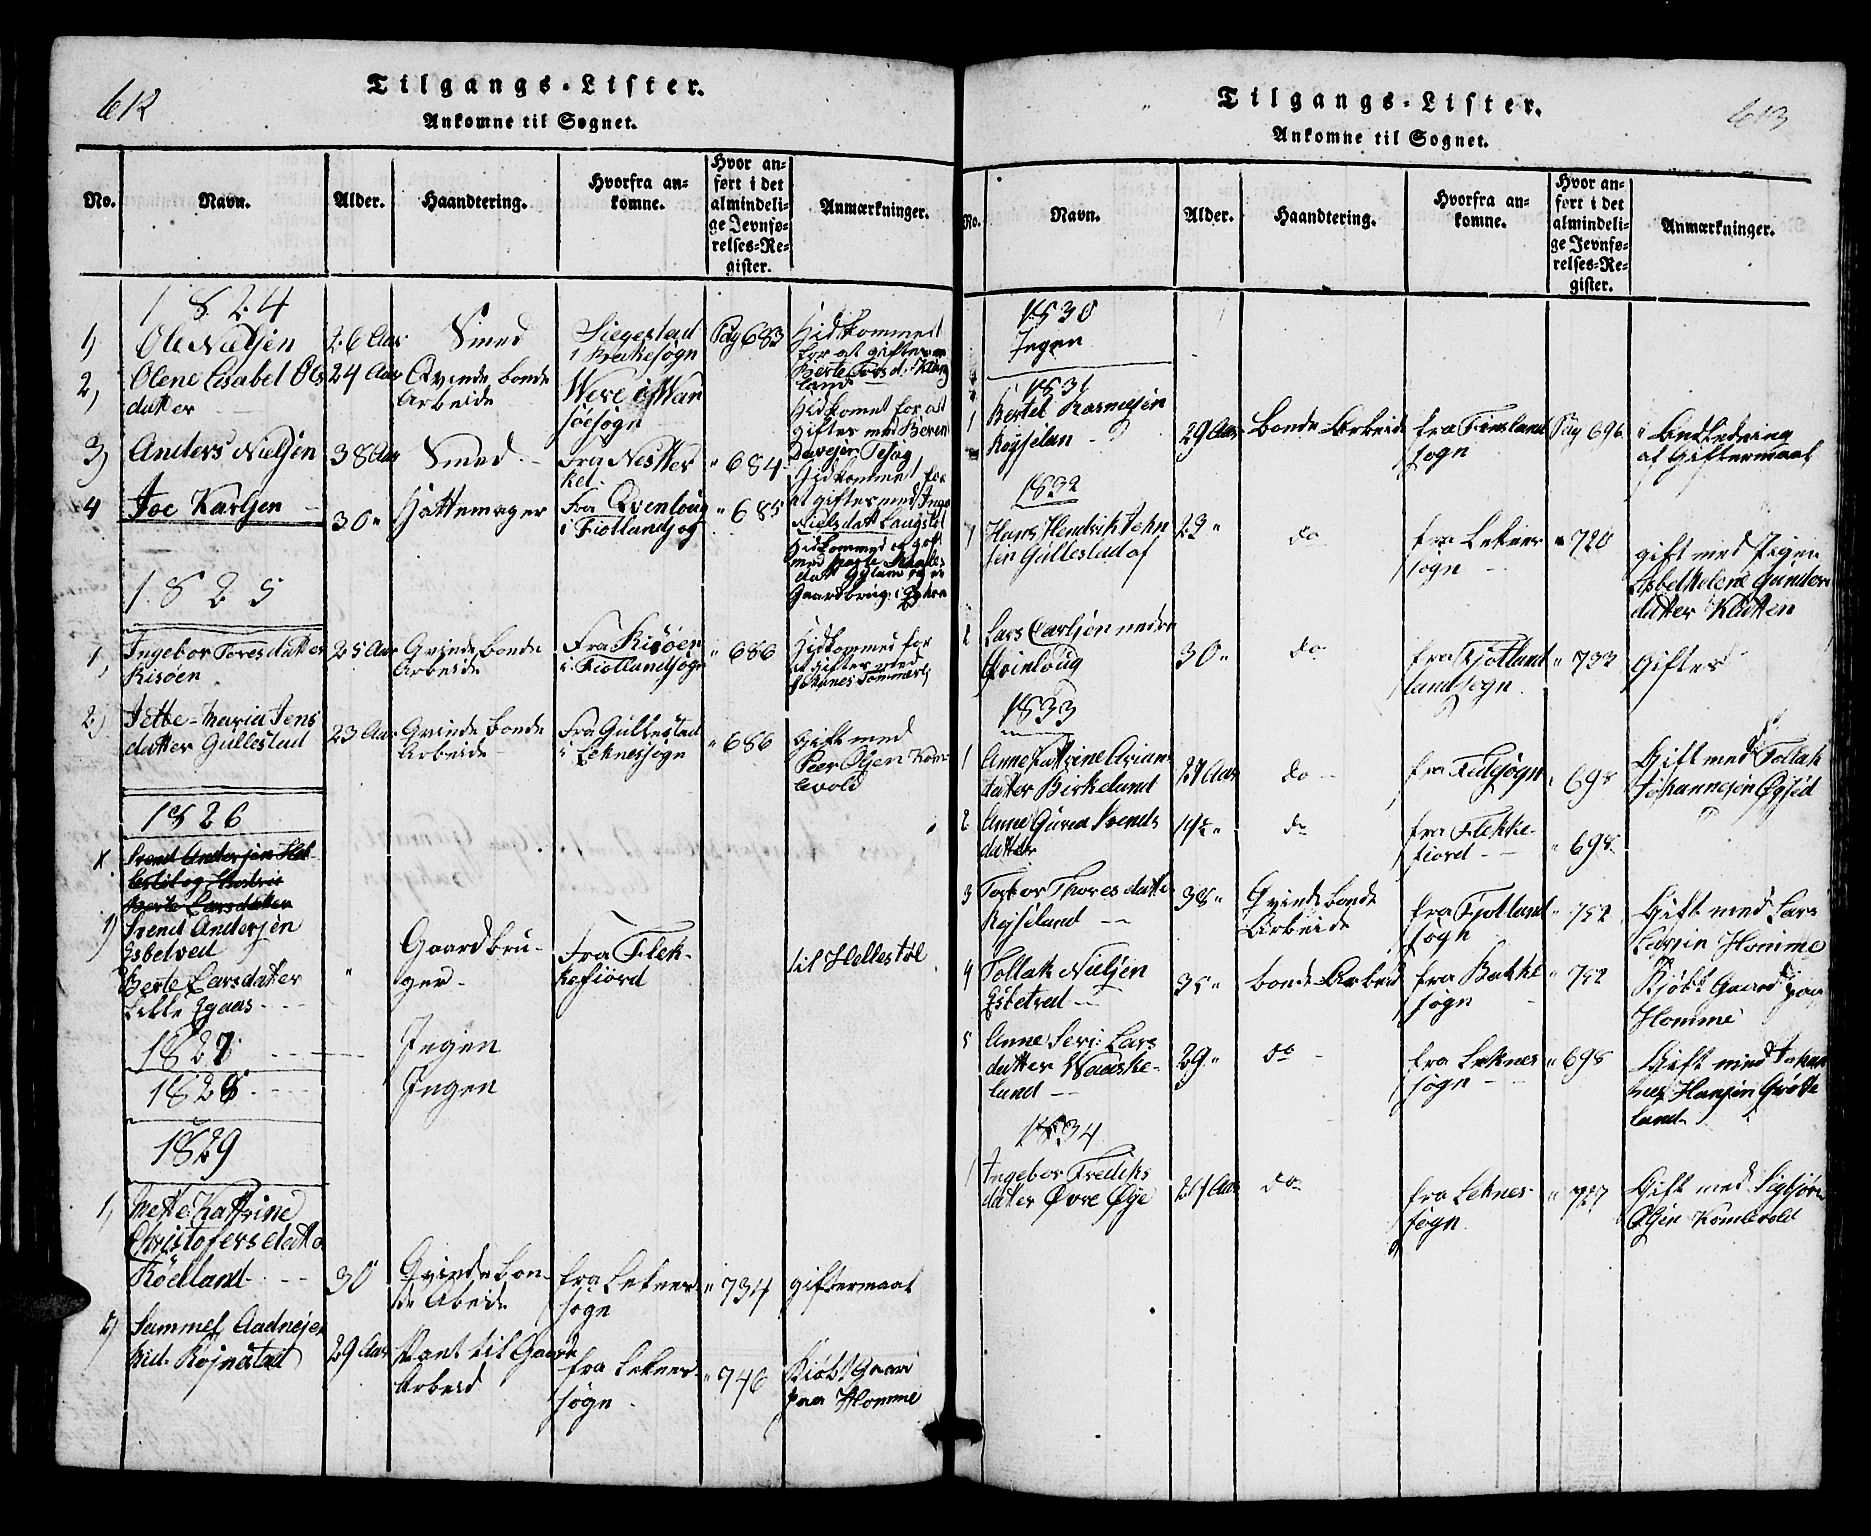 612
Tilgangs-Lister.
Ankomne til Sognet.
No.
Navn.
Alder.
Haandtering.
Hvorfra an-
komne.
Hvor an-
ført i det
almindeli-
ge Jevnfø-
relses-Re-
gister.
Anmærkninger.
1824
1)
Ole Nieljen
26 Aar
Smed
Siegestad
i Bekkesogn
Pag 683
Hidkommed
for at giftes
med
Berte
2)
Olene Lisabet Ols
datter
24 Aar
Qvinde bonde
Arbeide
söesogn
Hidkomet for at
Giftes med
3)
Anders Nieljen
38 Aar
Smed
Fra Nessters
kel.
" 684
Hidkommet for
at giftes med
4
Joe Karljen
30 "
Hattemager
Fra Qvenloug
i Fiotlandsog
" 685
Hidkommed
Gaardbrug i
1825
1,
Ingebor Toresdatter
Risöen
25 Aar
Qvinde bonde
Arbeide
Fra Risöen
i Fiotlandsogn
" 686
Hidkommed for
at Giftes med
2)
Jette-Maria Jens
datter Gullestad
23 Aar
Qvinde bonde
Arbeide
Fra Gullestad
i Leknessogn
" 686
gift med
Peer Olsen Kom-
levold
1826
Svend Andersen Hel-
lestöl og Hustrue
Berte Larsdatter
1)
Svend Andersen
Esbetved
Berte Larsdatter
Lille Egaas
"
Gaardbru-
ger
Fra Flek-
kefiord
til Hellestöl
1827
Ingen
1828
Ingen
1829
1,
Mette Kattrine
Christofersdatter
Röeland
30
Qvinde bon-
de Abeide
fra Leknes
sogn
" 734
giftermaal
2)
Sammel Aadnesen
29 Aar
Vant til Gaards
Arbeid
fra Leknes
sögn
" 746
Kiöbt Gaard
paa Homme
613
Tilgangs-Lister.
Ankomne til Sognet.
No.
Navn.
Alder.
Haandtering.
Hvorfra an-
komne.
Hvor an-
ført i det
almindeli-
ge Jevnfø-
relses-Re-
gister.
Anmærkninger.
1830
Ingen
1831
1
Bertel Rasmusjen
Reyselan
29 Aar
bonde Arbeide
fra Finsland
sogn
Pag 696
i Anledning
af Giftermaal
1832
1
Hans Hendrik Jehn
sen Gullestad af
23 "
do
fra Leknes
sogn
" 720
gift med Pigen
Lisbet Helene Gunders
datter Klutten
2
Lars Carljön nedre
Qvinloug
30 "
do
fra Fjotland
landsogn
" 733
Giftes
1833
1
Anne Kattrine Arian
datter Birkeland
27 Aar
do
fra Fedesogn
" 698
Gift med Tollak
Johannesen Øysæd
2
Anne Guria Svends
datter
do
fra Flekke-
fiord
" 698
3
Torbor Thoresdatter
Reyseland
38 "
Qvinde bonde
Arbeide
fra Fjotland
sogn
" 752
Gift med Lars
Larsen Homme
4
Tollak Nieljen
Esbetved
35 "
bonde Arbeid
fra Bakke
sögn
" 752
Kjöbt Gaard paa
Homme
5
Anne Seri: Lars
datter Waaske-
land
29 "
do
fra Leknes
sogn
" 698
Gift med Johan
nes Hansen Gröte
land
1834
1
Ingebor Frediks
datter Øvre Øye
21 Aar
do
fra Leknes
sogn
" 727
Gift med Sigbjörn
Olsen Komlevold